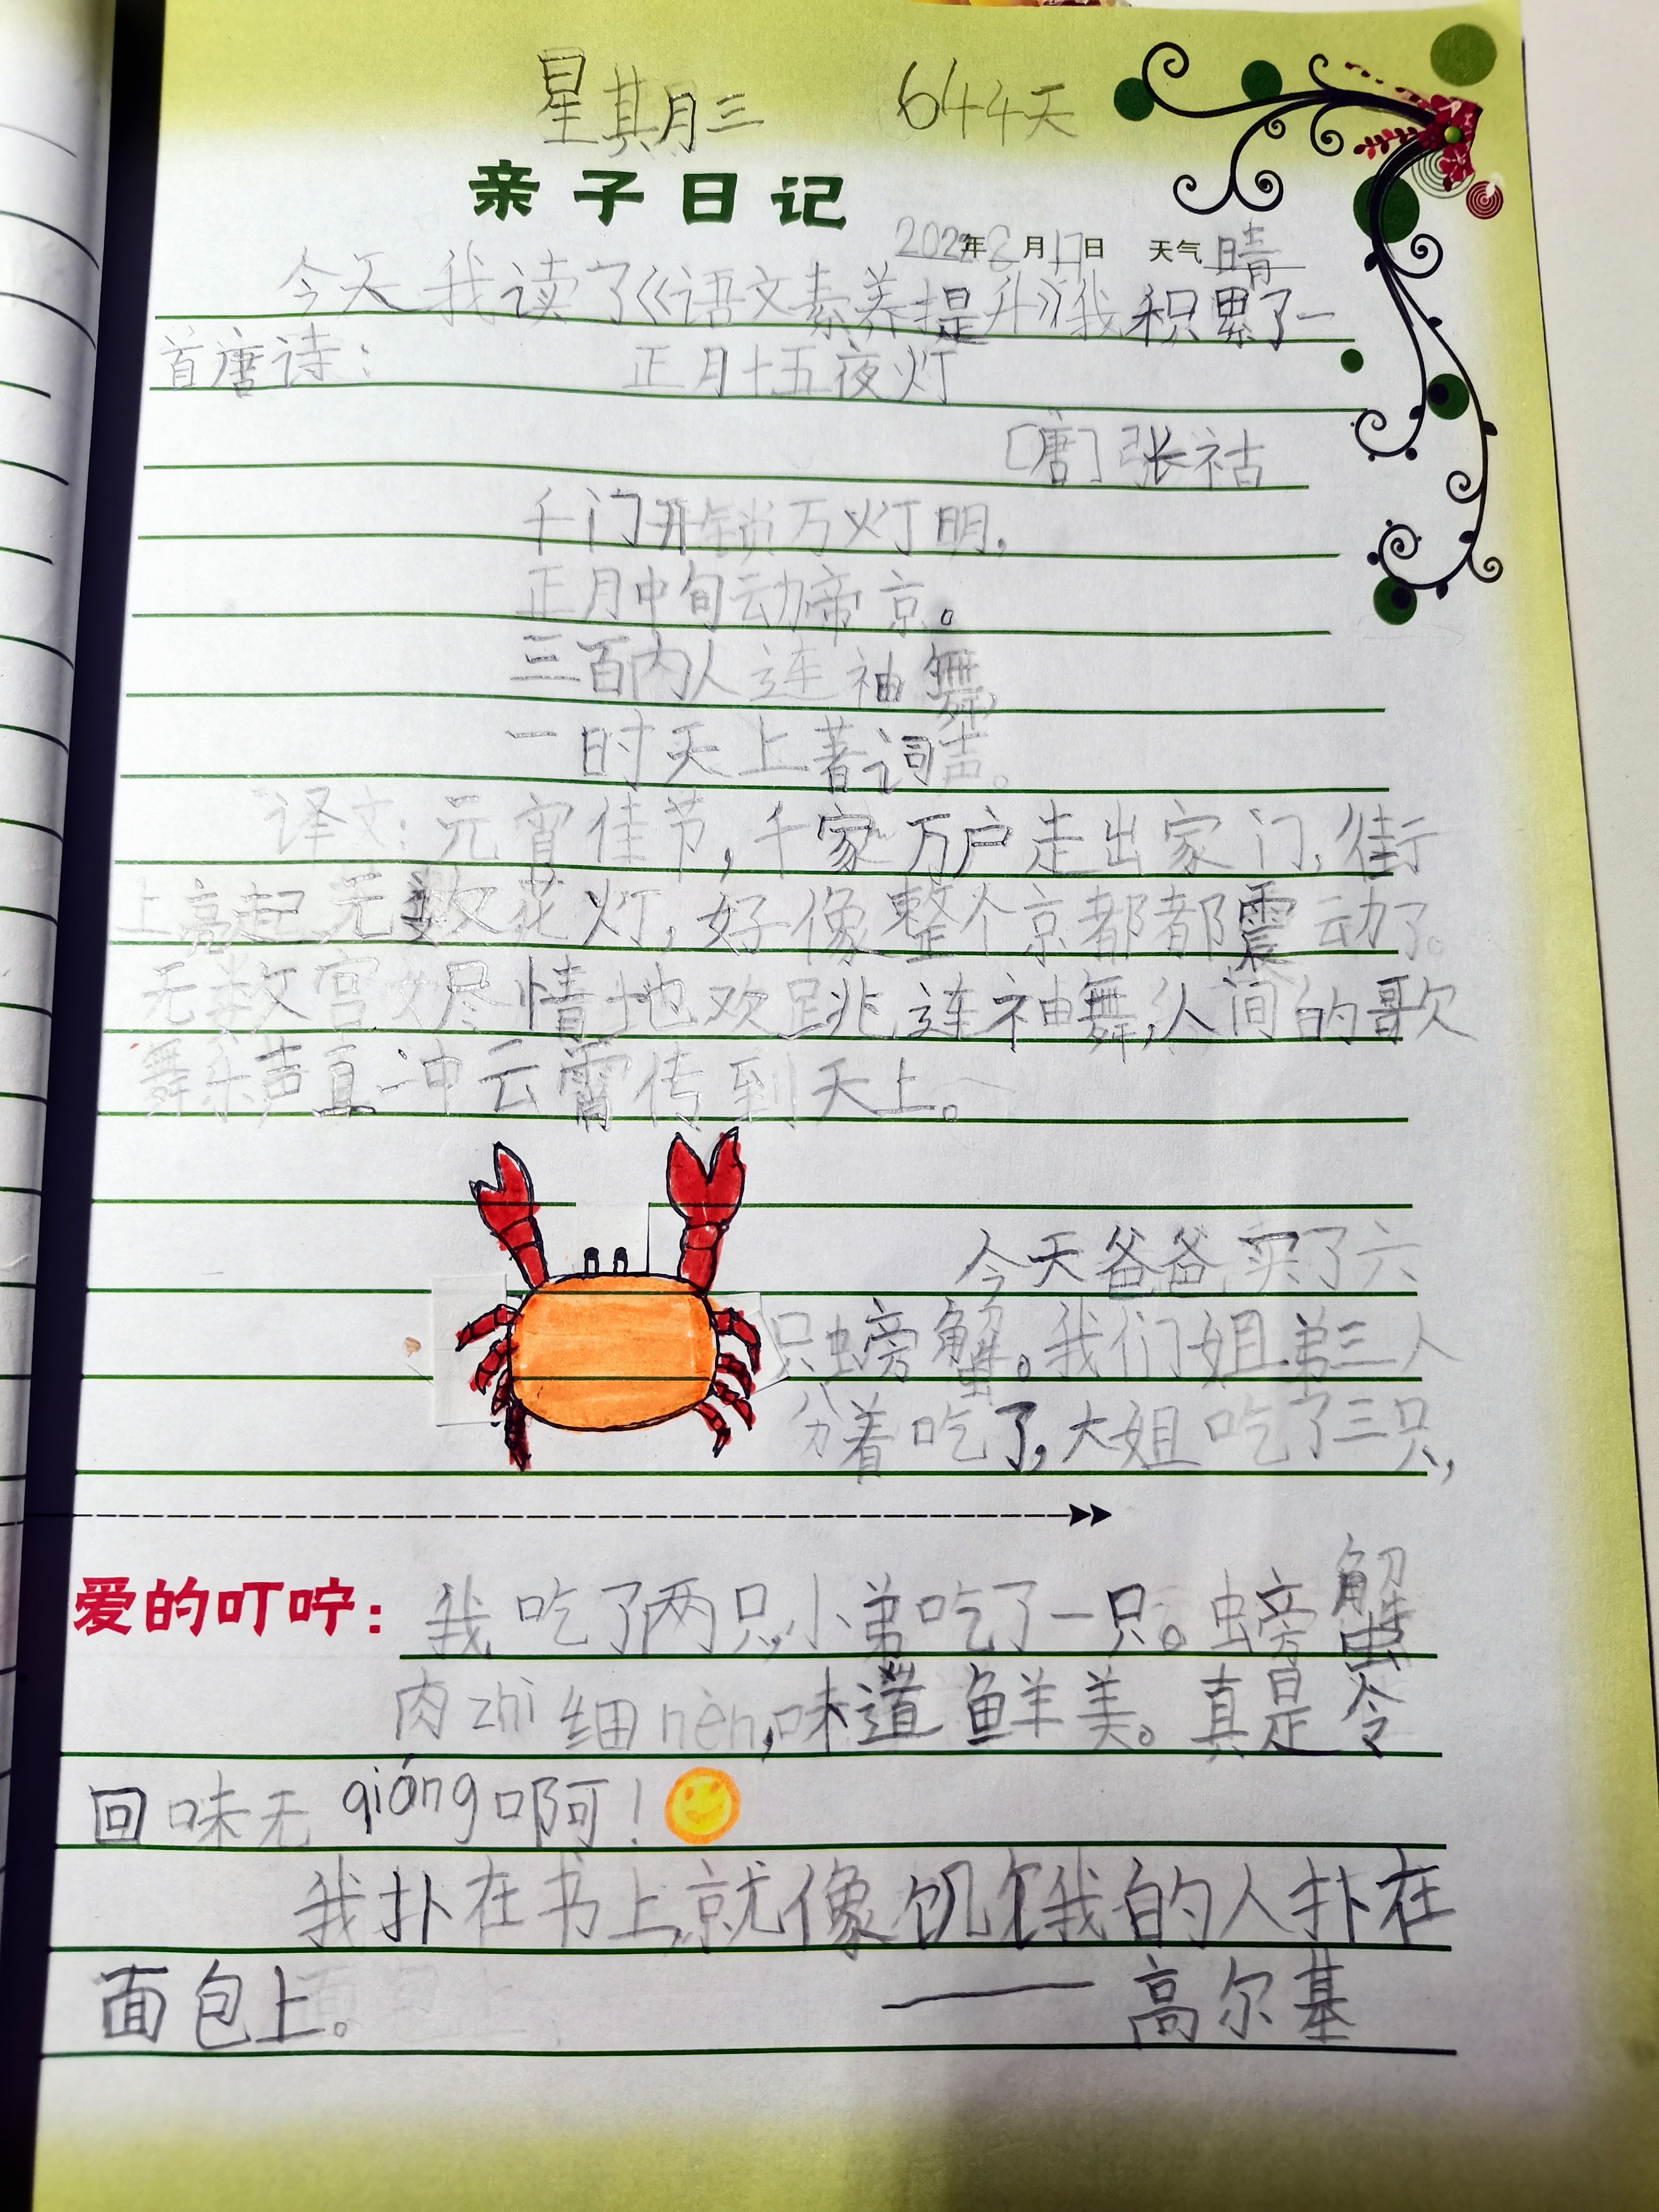 星期三 644天
亲子日记
2022年8月17日 天气 晴
今天我读了《语文素养提升》我积累了一
首唐诗: 正月十五夜灯
[唐] 张祜
千门开锁万灯明,
正月中旬动帝京。
三百内人连袖舞,
一时天上著词声。
译文:元宵佳节,千家万户走出家门,街
上亮起无数花灯,好像整个京都都震动了。
无数宫女尽情地欢跳连袖舞,人间的歌
舞乐声直冲云霄传到天上。
今天爸爸买了六
只螃蟹。我们姐弟三人
分着吃了,大姐吃了三只,
爱的叮咛: 我吃了两只,小弟吃了一只。螃蟹
肉zhi细nèn,味道鲜美。真是令
回味无qióng啊!
我扑在书上,就像饥饿的人扑在
面包上。 ——高尔基